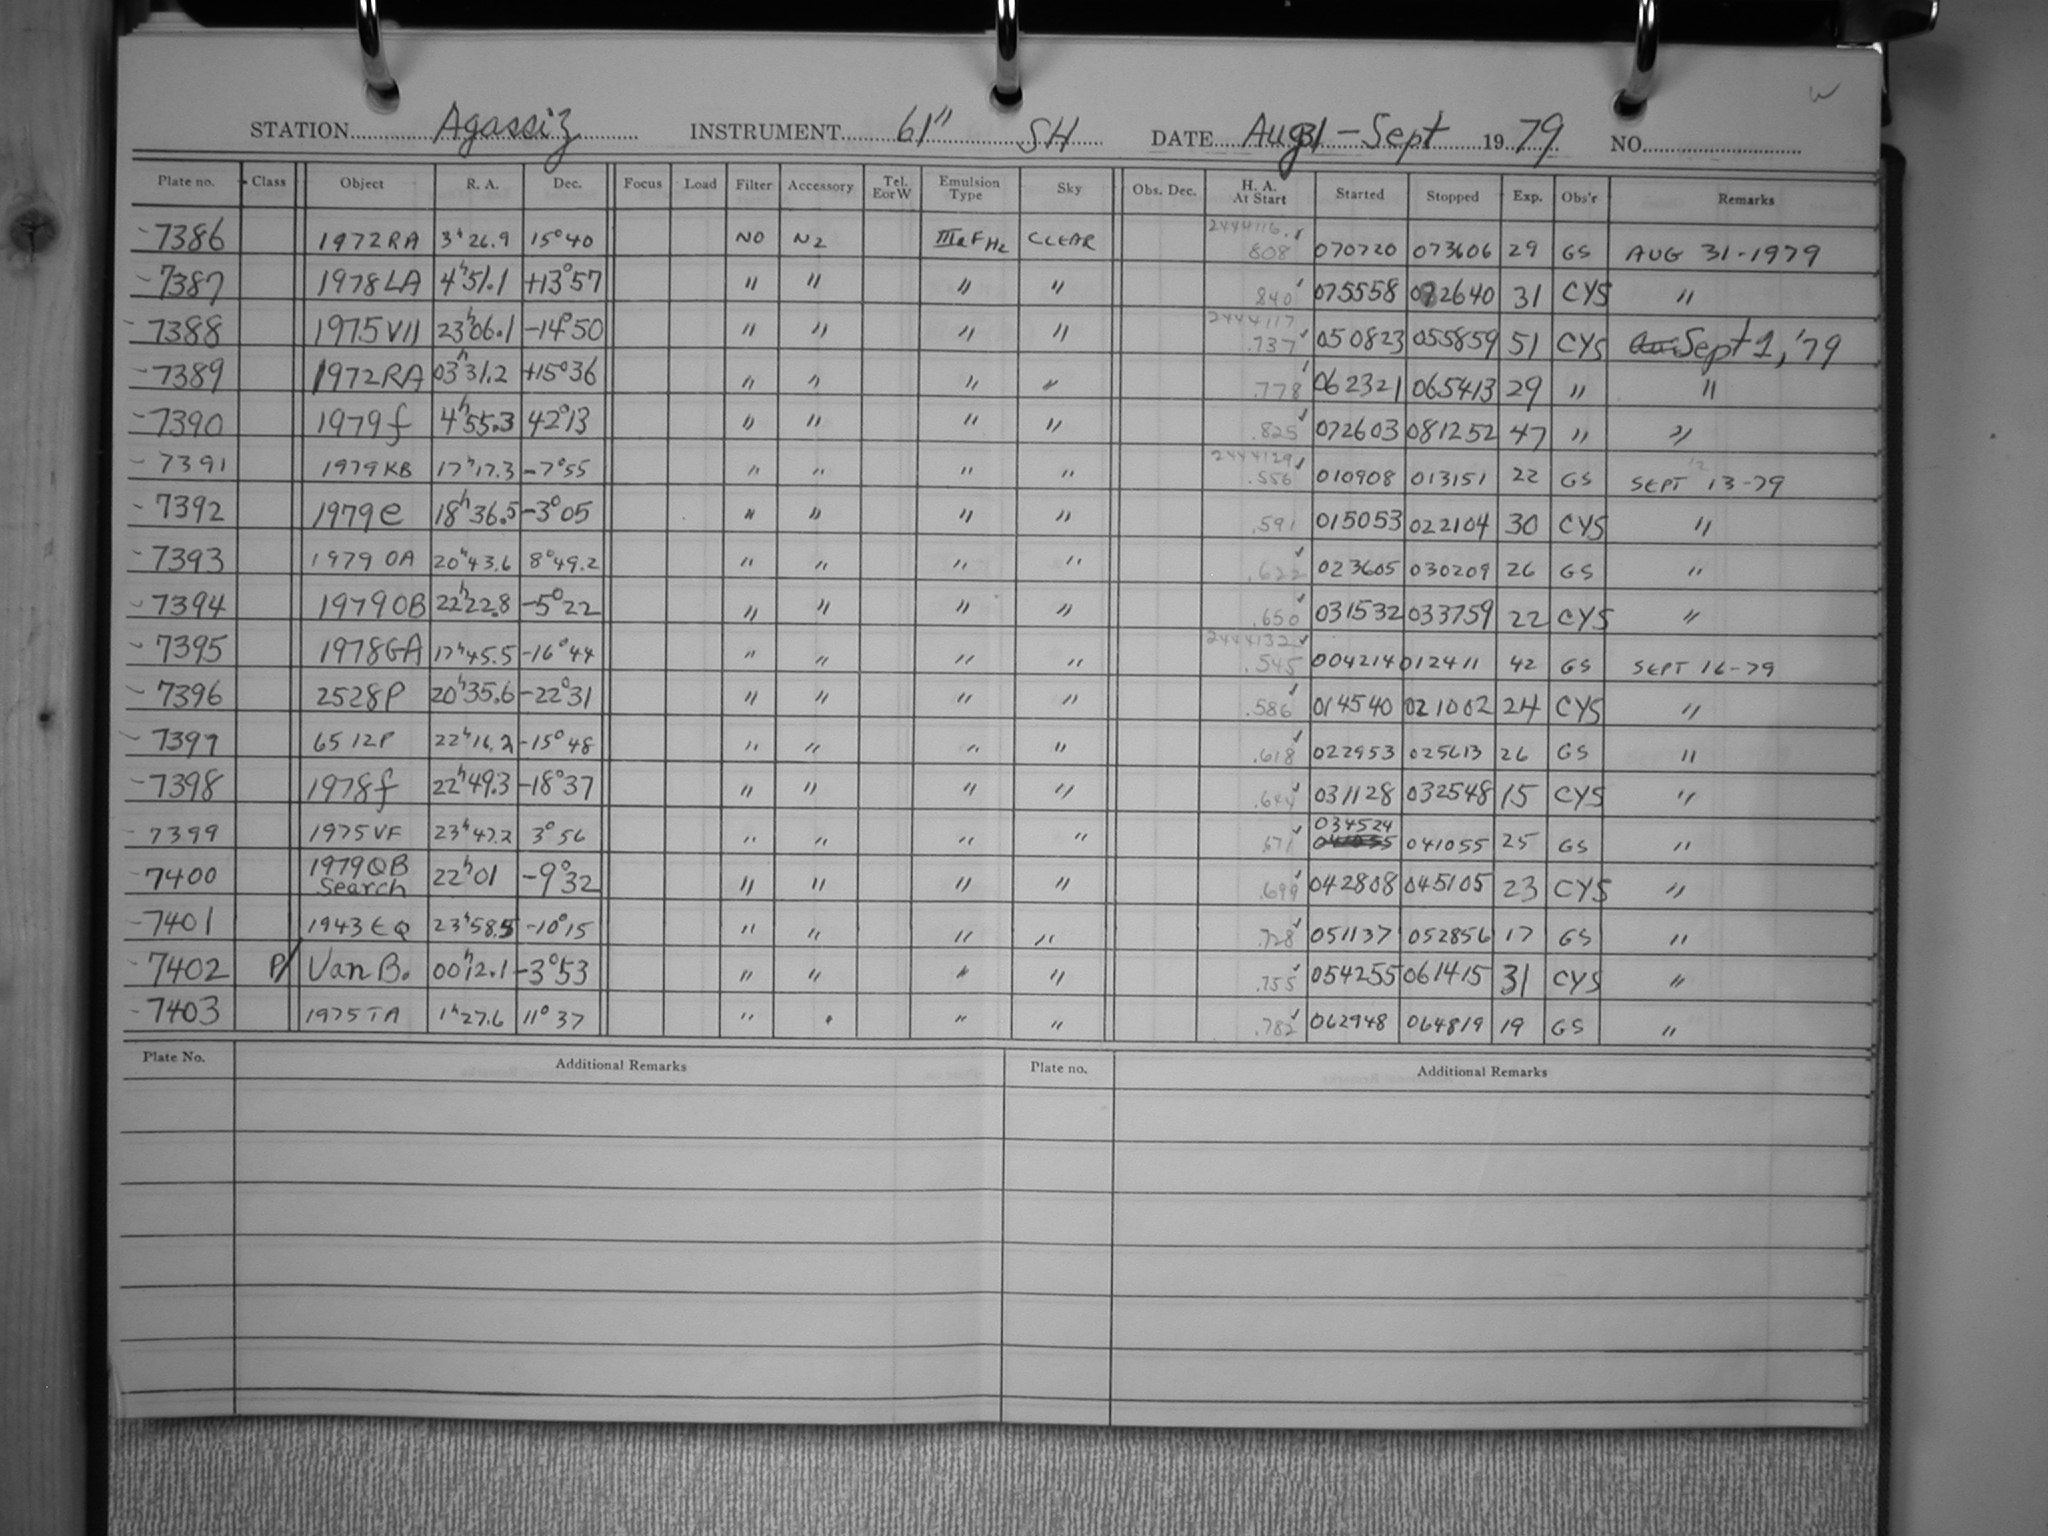 STATION Agassiz INSTRUMENT 61" SH DATE Aug 31 - Sept 1979 NO.
Plate no. Class Object R. A. Dec. Focus Load Filter Accessory Tel. E or W Emulsion Type Sky Obs. Dec. H. A. At Start Started Stopped Exp. Obs'r Remarks
7386 1972RA 3h26.9 15°40 NO N2 IIIaF CLEAR 2444116. 808 070720 073606 29 GS AUG 31-1979
7387 1978LA 4h51.1 +13°57 " " " " 840 075558 082640 31 CYS "
7388 1975VII 23h06.1 -14°50 " " " " 2444117 .737 050823 055859 51 CYS Sept 1, '79
7389 1972RA 03h31.2 +15°36 " " " " .778 062321 065413 29 " "
7390 1979f 4h55.3 42°13 " " " " .825 072603 081252 47 " "
7391 1979KB 17h17.3 -7°55 " " " " 2444129 .556 010908 013151 22 GS SEPT 13-79
7392 1979e 18h36.5 -3°05 " " " " .591 015053 022104 30 CYS "
7393 1979 OA 20h43.6 8°49.2 " " " " .622 023605 030209 26 GS "
7394 1979OB 22h22.8 -5°22 " " " " .650 031532 033759 22 CYS "
7395 1978GA 17h45.5 -16°44 " " " " 2444132 .545 004214 012411 42 GS SEPT 16-79
7396 2528P 20h35.6 -22°31 " " " " .586 014540 021002 24 CYS "
7397 6512P 22h16.2 -15°48 " " " " .618 022953 025613 26 GS "
7398 1978f 22h49.3 -18°37 " " " " .644 031128 032548 15 CYS "
7399 1975VF 23h47.2 3°56 " " " " .671 034524 041055 25 GS "
7400 1979QB Search 22h01 -9°32 " " " " .699 042808 045105 23 CYS "
7401 1943EQ 23h58.5 -10°15 " " " " .728 051137 052856 17 GS "
7402 P/ Van B. 00h12.1 -3°53 " " " " .755 054255 061415 31 CYS "
7403 1975TA 1h27.6 11°37 " " " .782 062948 064819 19 GS "
Plate No. Additional Remarks Plate no. Additional Remarks